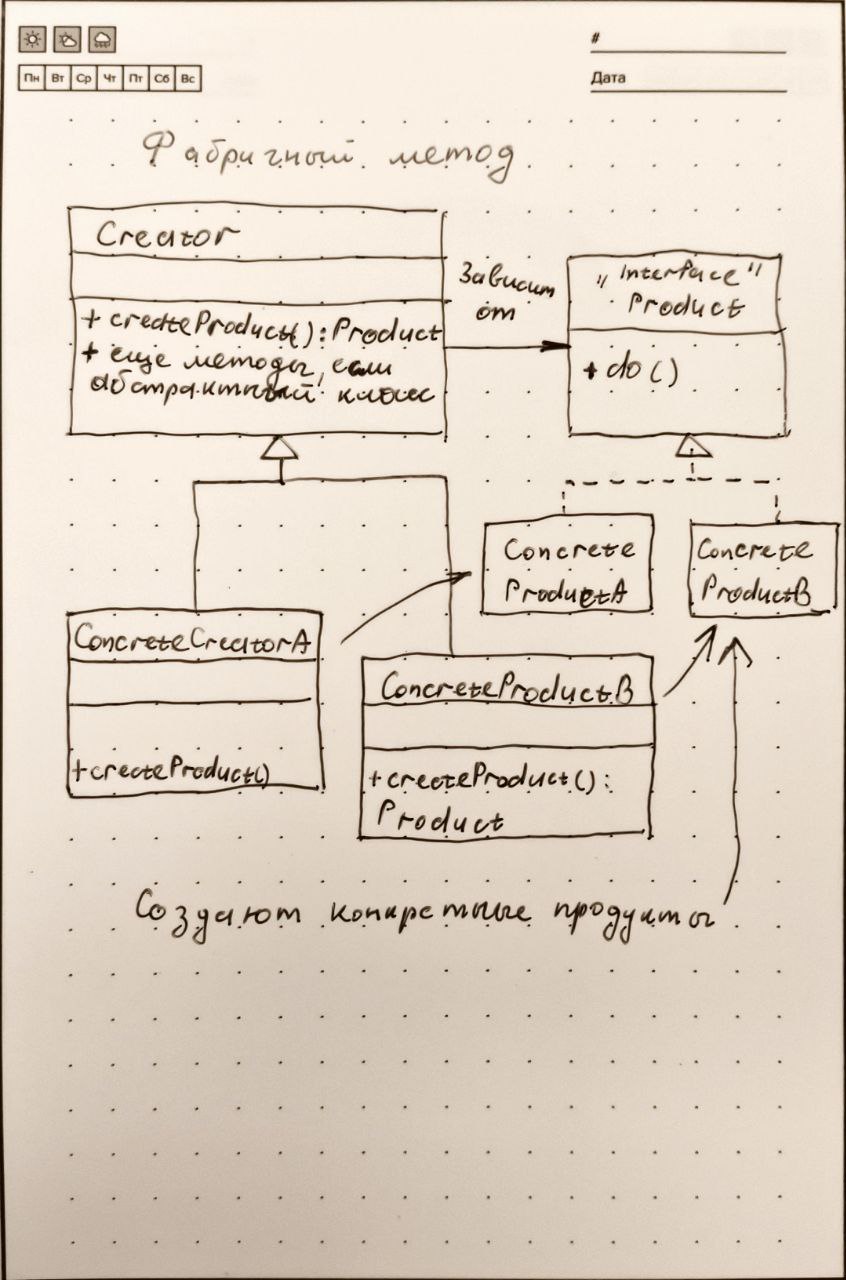 #
Пн Вт Ср Чт Пт Сб Вс
Дата
Фабричный метод
Creator
+ createProduct(): Product
+ еще методы, если
абстрактный класс
Зависит
от
"Interface"
Product
+ do()
Concrete
ProductA
Concrete
ProductB
ConcreteCreatorA
+createProduct()
ConcreteProductB
+createProduct():
Product
Создают конкретные продукты